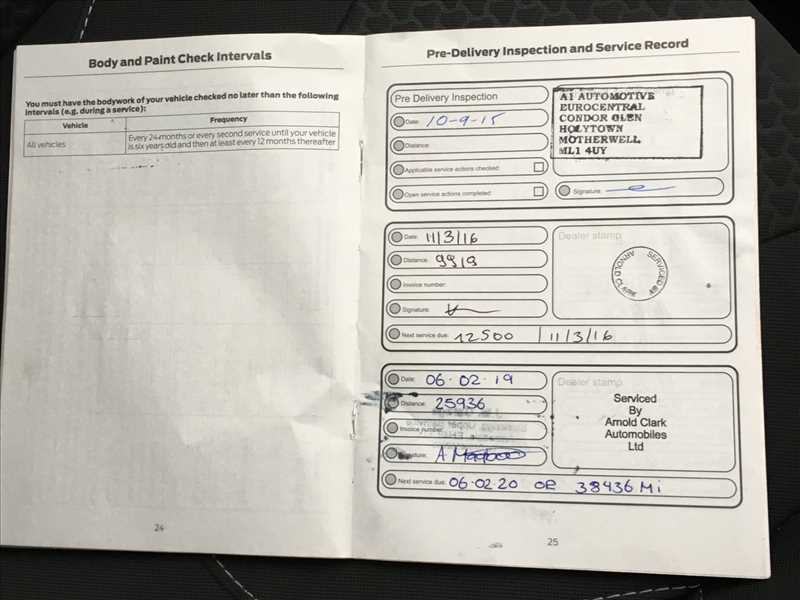 Body and Paint Check Intervals
You must have the bodywork of your vehicle checked no later than the following
intervals (e.g. during a service):
Vehicle Frequency
All vehicles Every 24 months or every second service until your vehicle
is six years old and then at least every 12 months thereafter
24
Pre-Delivery Inspection and Service Record
Pre Delivery Inspection
Date: 10-9-15
Distance:
Applicable service actions checked:
Open service actions completed:
A1 AUTOMOTIVE
EUROCENTRAL
CONDOR GLEN
HOLYTOWN
MOTHERWELL
ML1 4UY
Signature:
Date: 11/3/16
Distance: 9919
Invoice number:
Signature:
Next service due: 12500 11/3/16
Dealer stamp
SERVICED
ARNOLD
CLARK
Date: 06-02-19
Distance: 25936
Invoice number:
Signature: A
Next service due: 06.02.20 OR 38436 Mi
Dealer stamp
Serviced
By
Arnold Clark
Automobiles
Ltd
25